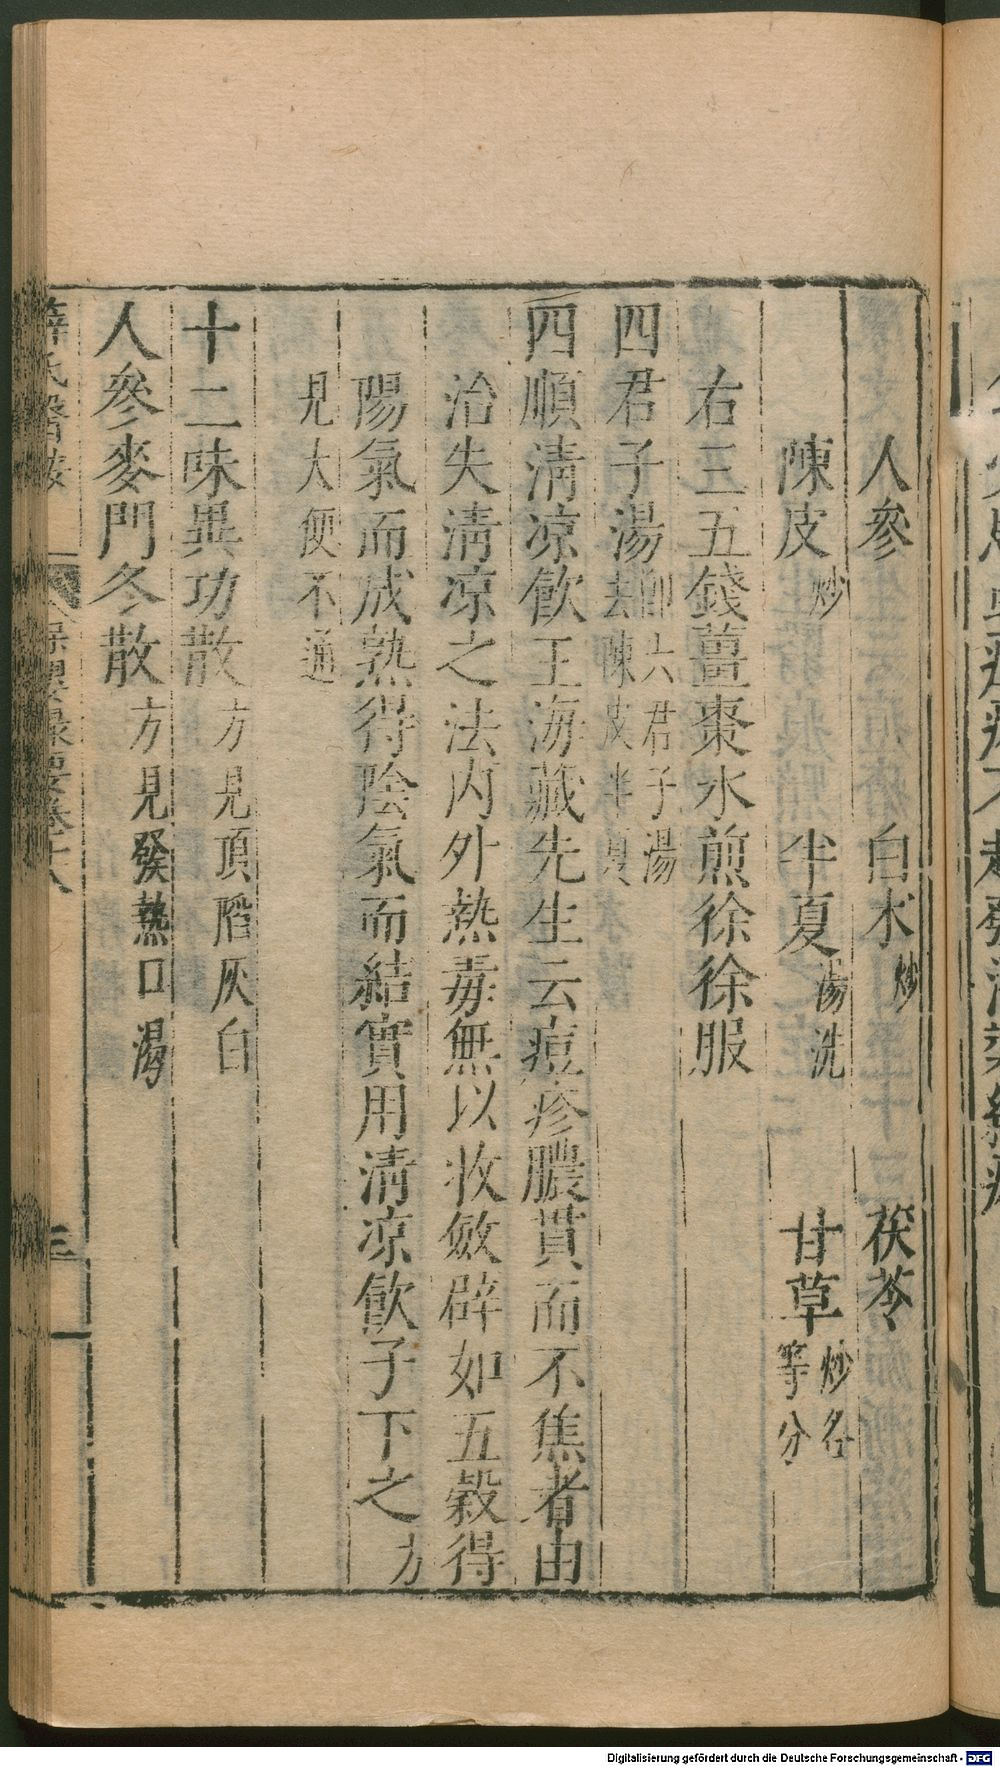 人參　白朮炒　茯苓
陳皮炒　半夏湯洗　甘草炒各等分
右三五錢薑棗水煎徐徐服
四君子湯卽六君子湯去陳皮半夏
四順淸凉飮王海藏先生云痘疹膿貫而不焦者由
治失淸凉之法內外熱毒無以收斂辟如五穀得
陽氣而成熟得陰氣而結實用淸凉飮子下之方
見大便不通
十二味異功散方見頂䧟灰白
人參麥門冬散方見發熱口渴
薛氏醫按　保嬰撮要卷十八　三
Digitalisierung gefördert durch die Deutsche Forschungsgemeinschaft - DFG